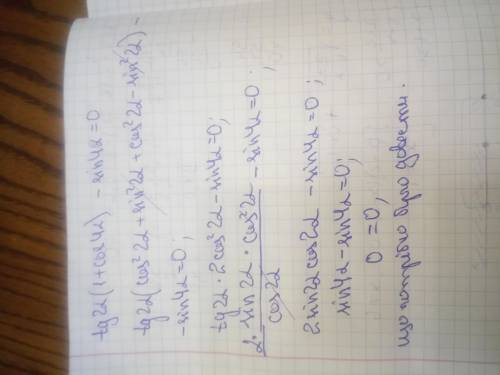 tg2α(1+cos4α) - sin4α=0
tg2α(cos²2α+sin²2α+cos²2α-sin²2α) -
-sin4α=0;
tg2α · 2cos²2α - sin4α=0;
2 · sin2α · cos²2α - sin4α=0;
cos2α
2sin2αcos2α - sin4α=0;
sin4α-sin4α=0;
0=0,
що потрібно було довести.